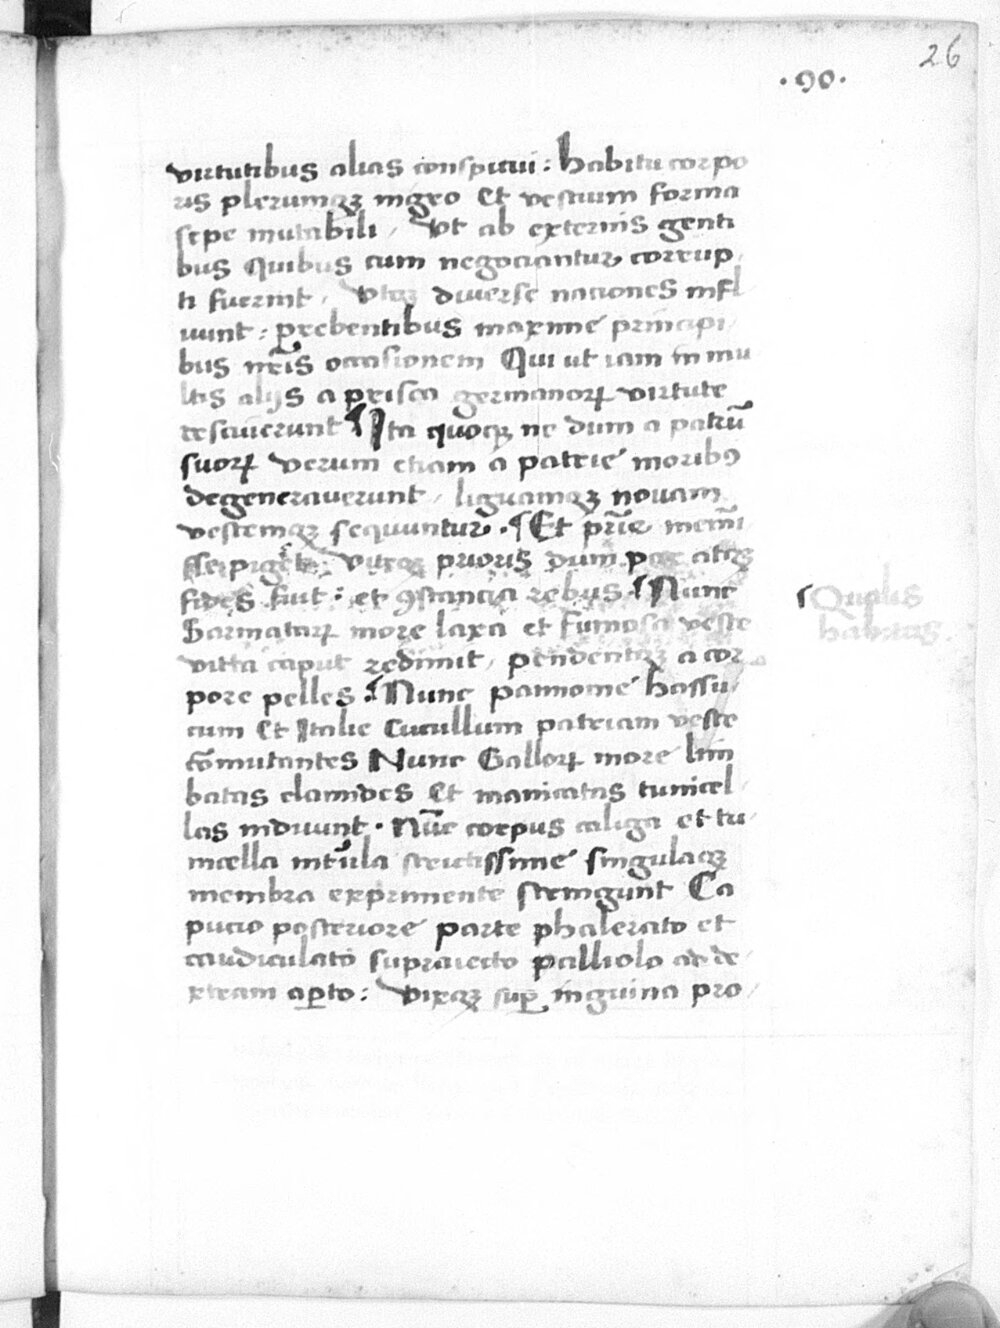 26
·90·
virtutibus alias conspicui : habitu corpo
ris plerumqꝫ nigro Et vestium forma
sepe mutabili / Vt ab externis genti
bus Quibus cum negociantur corrup
ti fuerint / Vtqꝫ diuerse naciones infl
uunt : prebentibus maxime principi
bus nr̄is occasionem Qui ut iam in mu
ltis alijs a prisca germanoꝝ virtute
desciuerunt ¶ Ita quoqꝫ ne dum a patrū
suoꝝ verum etiam a patrie moribꝯ
degenerauerunt / liguamqꝫ nouam
vestemqꝫ sequuntur · ¶ Et
prioris dum
fides fuit : et ꝯstancia rebus ¶ Nunc
Sarmataꝝ more laxa et fumosa veste
vitta caput redimit / pendentqꝫ a cor
pore pelles : ¶ Nunc pannonie hassu
cum Et Italie Cucullum patriam veste
cōmutantes Nunc Galloꝝ more lim
batas clamides Et manicatas tunicel
las induunt · Nūc corpus caliga et tu
nicella strictissime singulaqꝫ
membra exprimente stringunt Ca
pucio posteriore parte phalerato et
caudiculato supraiecto palliolo ad de
xteram aꝑto : Vixqꝫ suꝑ inguina pro
¶ Qualis
habitus